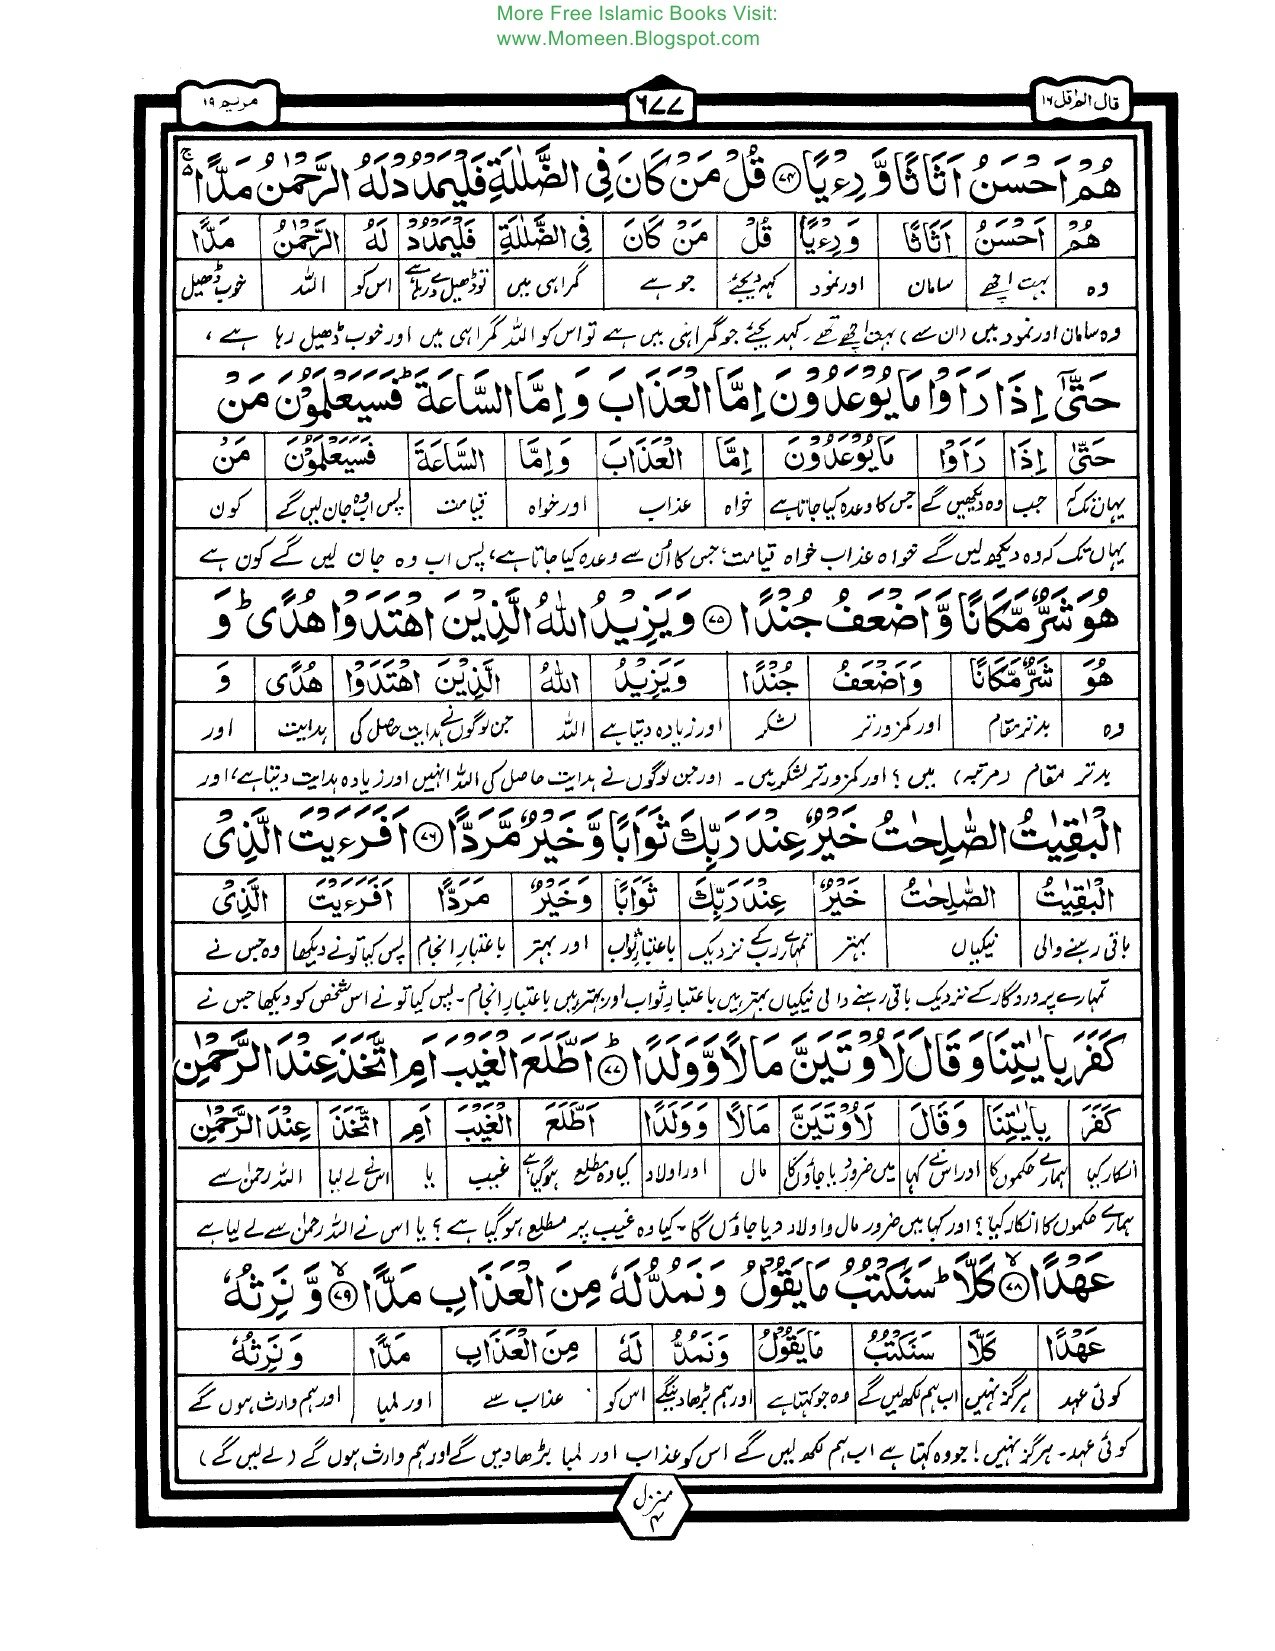 More Free Islamic Books Visit:
www.Momeen.Blogspot.com
قال الم قل ١٦
٦٧٧
مریم ١٩
هُمْ اَحْسَنُ اَثَاثًا وَّ رِءْيًا ﴿۷۴﴾ قُلْ مَنْ كَانَ فِى الضَّلٰلَةِ فَلْيَمْدُدْ لَهُ الرَّحْمٰنُ مَدًّا ۚ۬
هُمْ اَحْسَنُ اَثَاثًا وَرِءْيًا قُلْ مَنْ كَانَ فِى الضَّلٰلَةِ فَلْيَمْدُدْ لَهُ الرَّحْمٰنُ مَدًّا
وہ بہت اچھے سامان اور نمود کہہ دیجئے جو ہے گمراہی میں تو ڈھیل دے رہا ہے اس کو اللہ خوب ڈھیل
وہ سامان اور نمود میں (ان سے) بہت اچھے تھے۔ کہہ دیجئے جو گمراہی میں ہے تو اس کو اللہ گمراہی میں اور خوب ڈھیل رہا ہے،
حَتّٰٓى اِذَا رَاَوْا مَا يُوْعَدُوْنَ اِمَّا الْعَذَابَ وَ اِمَّا السَّاعَةَ ؕ فَسَيَعْلَمُوْنَ مَنْ
حَتّٰٓى اِذَا رَاَوْا مَا يُوْعَدُوْنَ اِمَّا الْعَذَابَ وَاِمَّا السَّاعَةَ فَسَيَعْلَمُوْنَ مَنْ
یہاں تک کہ جب وہ دیکھیں گے جس کا وعدہ کیا جاتا ہے خواہ عذاب اور خواہ قیامت پس اب وہ جان لیں گے کون
یہاں تک کہ وہ دیکھ لیں گے خواہ عذاب خواہ قیامت، جس کا اُن سے وعدہ کیا جاتا ہے، پس اب وہ جان لیں گے کون ہے
هُوَ شَرٌّ مَّكَانًا وَّ اَضْعَفُ جُنْدًا ﴿۷۵﴾ وَ يَزِيْدُ اللّٰهُ الَّذِيْنَ اهْتَدَوْا هُدًى ؕ وَ
هُوَ شَرٌّ مَّكَانًا وَاَضْعَفُ جُنْدًا وَيَزِيْدُ اللّٰهُ الَّذِيْنَ اهْتَدَوْا هُدًى وَ
وہ بدتر مقام اور کمزورتر لشکر اور زیادہ دیتا ہے اللہ جن لوگوں نے ہدایت حاصل کی ہدایت اور
بدتر مقام (مرتبہ) میں؟ اور کمزورتر لشکر میں۔ اور جن لوگوں نے ہدایت حاصل کی اللہ انہیں اور زیادہ ہدایت دیتا ہے، اور
الْبٰقِيٰتُ الصّٰلِحٰتُ خَيْرٌ عِنْدَ رَبِّكَ ثَوَابًا وَّ خَيْرٌ مَّرَدًّا ﴿۷۶﴾ اَفَرَءَيْتَ الَّذِىْ
الْبٰقِيٰتُ الصّٰلِحٰتُ خَيْرٌ عِنْدَ رَبِّكَ ثَوَابًا وَخَيْرٌ مَرَدًّا اَفَرَءَيْتَ الَّذِىْ
باقی رہنے والی نیکیاں بہتر تمہارے رب کے نزدیک باعتبارِ ثواب اور بہتر باعتبارِ انجام پس کیا تو نے دیکھا وہ جس نے
تمہارے پروردگار کے نزدیک باقی رہنے والی نیکیاں بہتر ہیں باعتبارِ ثواب اور بہتر ہیں باعتبارِ انجام۔ پس کیا تو نے اس شخص کو دیکھا جس نے
كَفَرَ بِاٰيٰتِنَا وَ قَالَ لَاُوْتَيَنَّ مَالًا وَّ وَلَدًا ﴿۷۷﴾ؕ اَطَّلَعَ الْغَيْبَ اَمِ اتَّخَذَ عِنْدَ الرَّحْمٰنِ
كَفَرَ بِاٰيٰتِنَا وَقَالَ لَاُوْتَيَنَّ مَالًا وَوَلَدًا اَطَّلَعَ الْغَيْبَ اَمِ اتَّخَذَ عِنْدَ الرَّحْمٰنِ
انکار کیا ہمارے حکموں کا اور اس نے کہا میں ضرور دیا جاؤں گا مال اور اولاد کیا وہ مطلع ہو گیا ہے غیب یا اس نے لے لیا اللہ رحمٰن سے
ہمارے حکموں کا انکار کیا؟ اور کہا میں ضرور مال و اولاد دیا جاؤں گا۔ کیا وہ غیب پر مطلع ہو گیا ہے؟ یا اس نے اللہ رحمٰن سے لے لیا ہے
عَهْدًا ﴿۷۸﴾ۙ كَلَّا ؕ سَنَكْتُبُ مَا يَقُوْلُ وَ نَمُدُّ لَهٗ مِنَ الْعَذَابِ مَدًّا ﴿۷۹﴾ۙ وَّ نَرِثُهٗ
عَهْدًا كَلَّا سَنَكْتُبُ مَا يَقُوْلُ وَنَمُدُّ لَهٗ مِنَ الْعَذَابِ مَدًّا وَنَرِثُهٗ
کوئی عہد ہرگز نہیں اب ہم لکھ لیں گے وہ جو کہتا ہے اور ہم بڑھا دینگے اس کو عذاب سے اور لمبا اور ہم وارث ہوں گے
کوئی عہد۔ ہرگز نہیں! جو وہ کہتا ہے اب ہم لکھ لیں گے اس کو عذاب اور لمبا بڑھا دیں گے اور ہم وارث ہوں گے (لے لیں گے)
منزل ۴